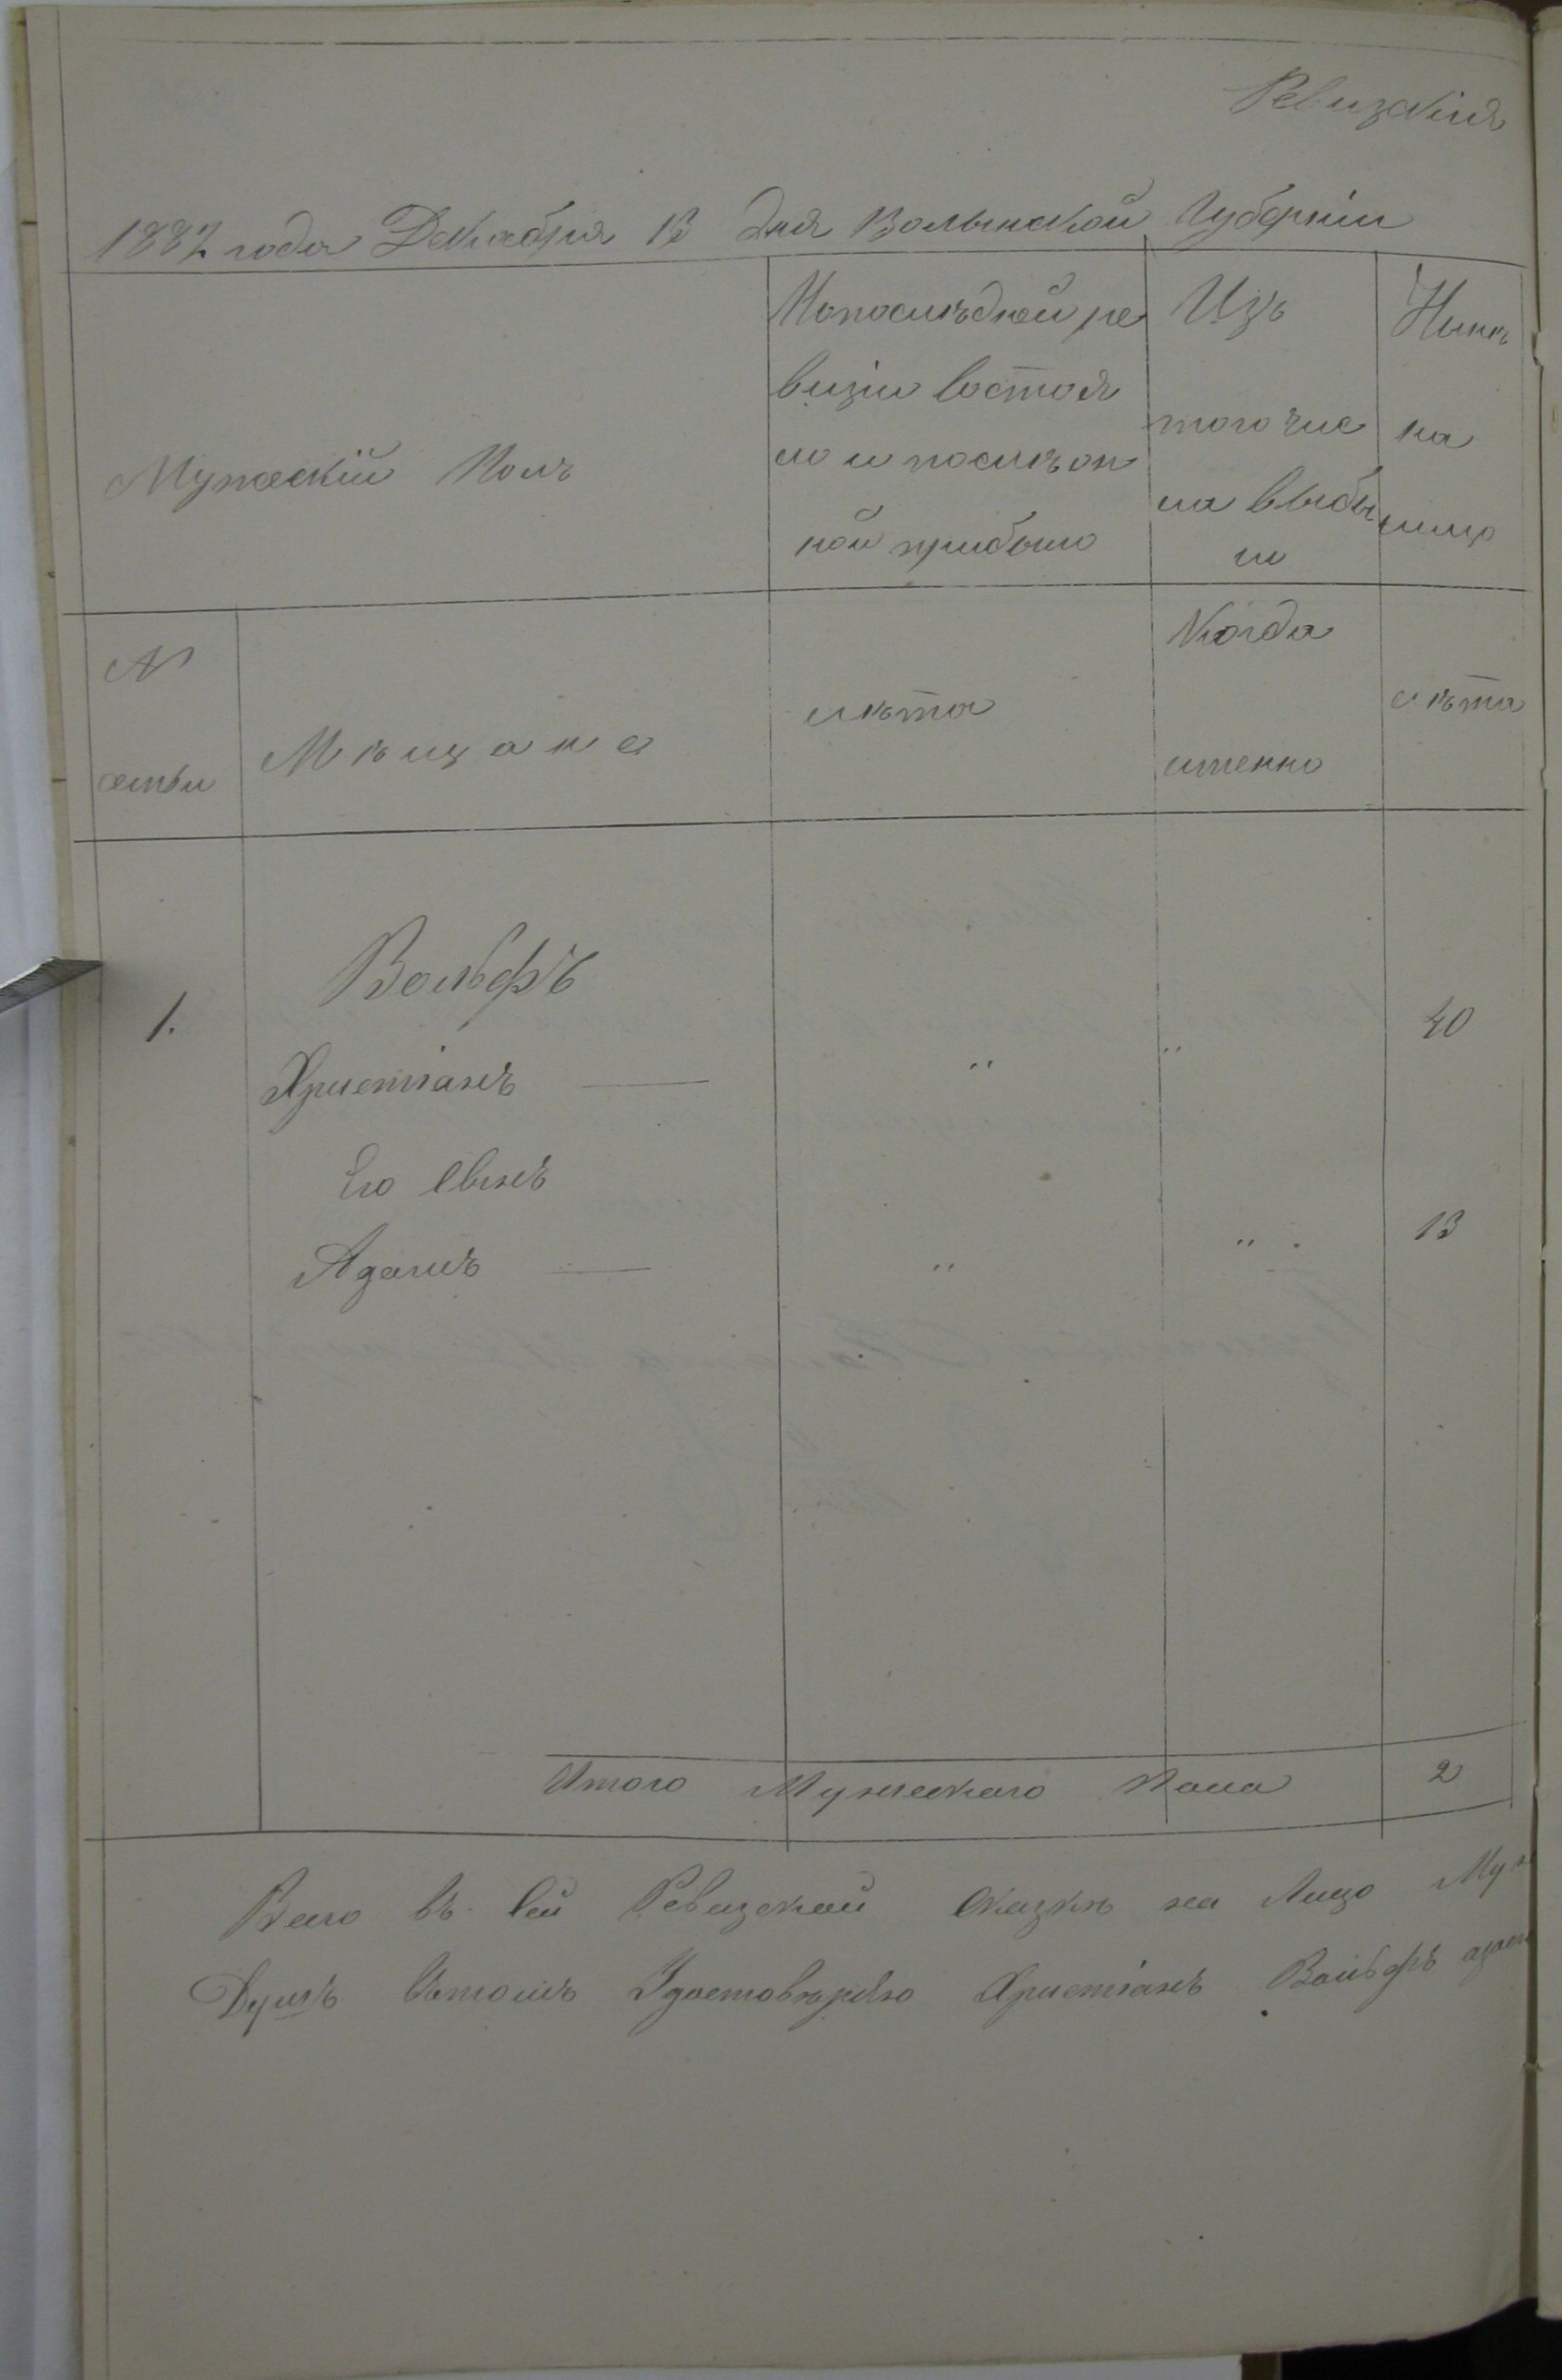 Ревизская
1887 года Декабря 13 дня Волынской Губерніи
Мужескій Полъ
Попоследней ре
визіи состоя
ло и послѣ он
ной прибыло
Изъ
того чис
ла выбы
ло
Нынѣ
на
лицо
№
семьи
Мѣщане
лѣта
Когда
именно
лѣта
Вольфъ
1. Христіанъ — " " 40
Его Сынъ
Адамъ — " " 13
Итого Мужескаго Пола 2
Всего въ сей Ревизской Сказкѣ на Лицо Муж
Душъ Вътомъ Удостовѣряю Христіанъ Вольфъ